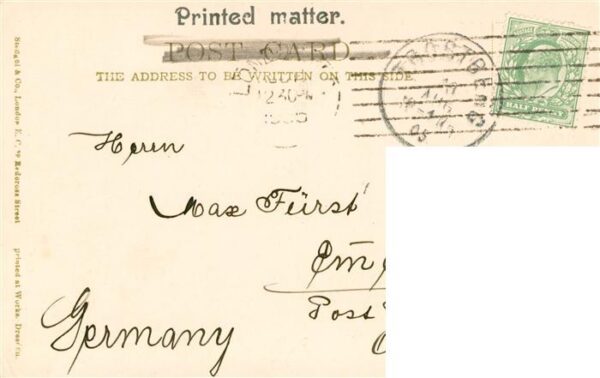 Printed matter.
POST CARD
THE ADDRESS TO BE WRITTEN ON THIS SIDE.
12
1905
HALF
Herrn
Max Fürst
Post
Germany
Stengel & Co., London E. C. 39 Redcross Street
printed at Works, Dresden.